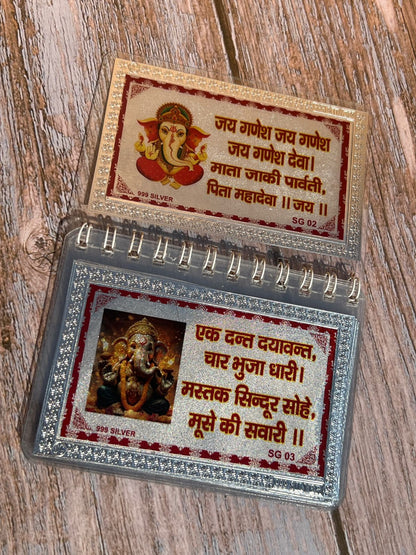 जय गणेश जय गणेश
जय गणेश देवा।
माता जाकी पार्वती,
पिता महादेवा ।। जय ।।
999 SILVER
SG 02
एक दन्त दयावन्त,
चार भुजा धारी।
मस्तक सिन्दूर सोहे,
मूसे की सवारी ।।
999 SILVER
SG 03